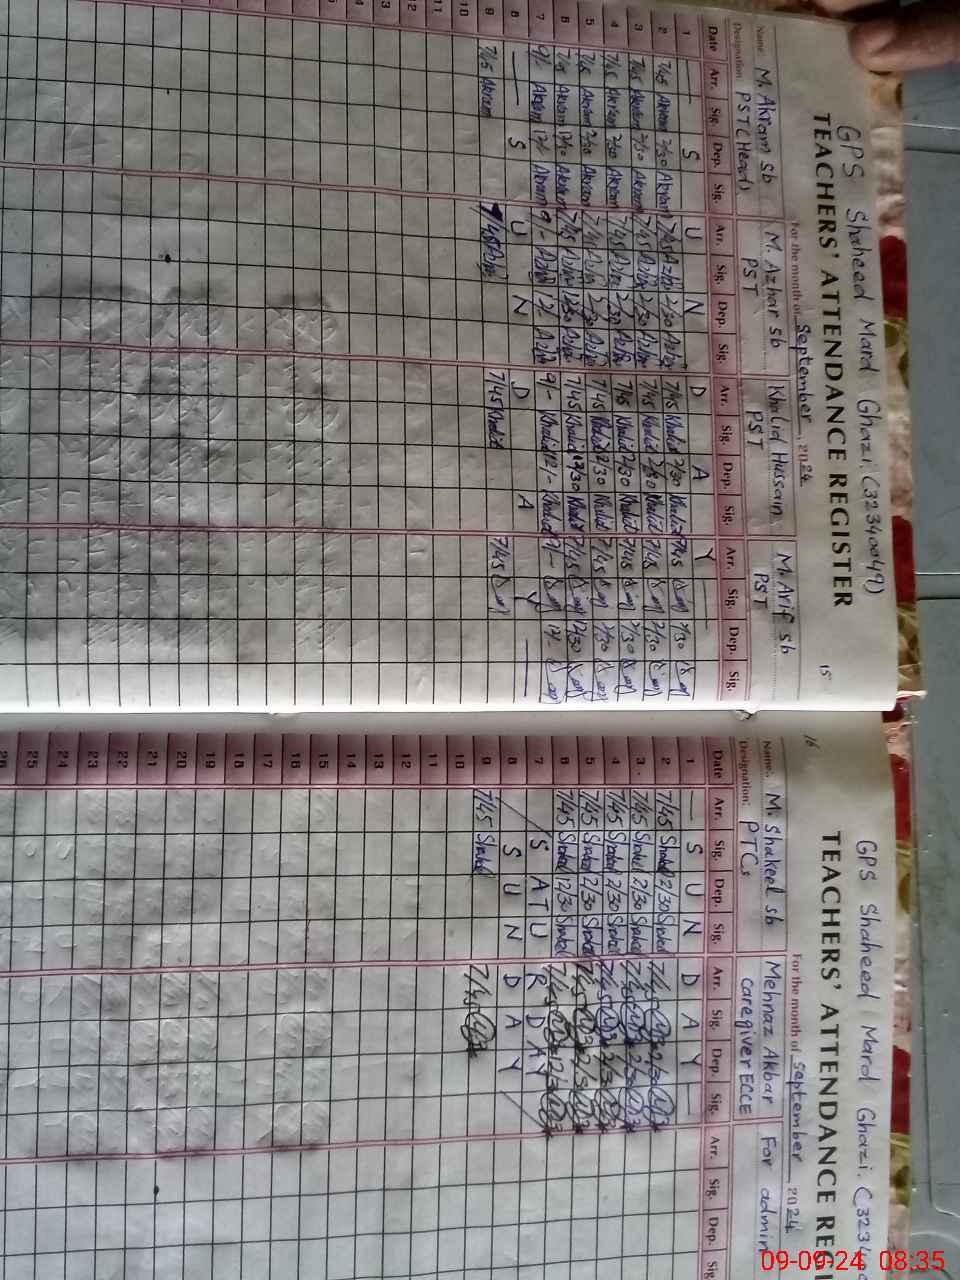 GPS Shaheed Mard Ghazi. (32340049)
TEACHERS' ATTENDANCE REGISTER
15
For the month of September, 2024
Name: M. Akram Sb M. Azhar Sb Khalid Hussain M. Arif Sb
Designation: PST (Head) PST PST PST
Date Arr. Sig. Dep. Sig. Arr. Sig. Dep. Sig. Arr. Sig. Dep. Sig. Arr. Sig. Dep. Sig.
1 S U N D A Y
2 7/45 Akram 2/30 Akram 7/45 Azhar 2/30 Azhar 7/45 Khalid 2/30 Khalid 7/45 2/30
3 7/45 Akram 2/30 Akram 7/45 Azhar 2/30 Azhar 7/45 Khalid 2/30 Khalid 7/45 2/30
4 7/45 Akram 2/30 Akram 7/45 Azhar 2/30 Azhar 7/45 Khalid 2/30 Khalid 7/45 2/30
5 7/45 Akram 2/30 Akram 7/45 Azhar 2/30 Azhar 7/45 Khalid 2/30 Khalid 7/45 2/30
6 7/45 Akram 12/30 Akram 7/45 Azhar 12/30 Azhar 7/45 Khalid 12/30 Khalid 7/45 12/30
7 9/- Akram 12/- Akram 9/- Azhar 12/- Azhar 9/- Khalid 12/- Khalid 9/- 12/-
8 S U N D A Y
9 7/45 Akram 7/45 Azhar 7/45 Khalid 7/45
10
11
12
13
16
GPS Shaheed Mard Ghazi. (3234
TEACHERS' ATTENDANCE REG
For the month of September 2024
Name: M. Shakeel Sb Mehnaz Akbar For admin
Designation: PTCs Caregiver ECCE
Date Arr. Sig. Dep. Sig. Arr. Sig. Dep. Sig. Arr. Sig. Dep.
1 S U N D A Y
2 7/45 Shakeel 2/30 Shakeel 7/45 2/30
3 7/45 Shakeel 2/30 Shakeel 7/45 2/30
4 7/45 Shakeel 2/30 Shakeel 7/45 2/30
5 7/45 Shakeel 2/30 Shakeel 7/45 2/30
6 7/45 Shakeel 12/30 Shakeel 7/45 12/30
7 S A T U R D A Y
8 S U N D A Y
9 7/45 Shakeel 7/45
10
11
12
13
14
15
16
17
18
19
20
21
22
23
24
25
26
09-09-24 08:35